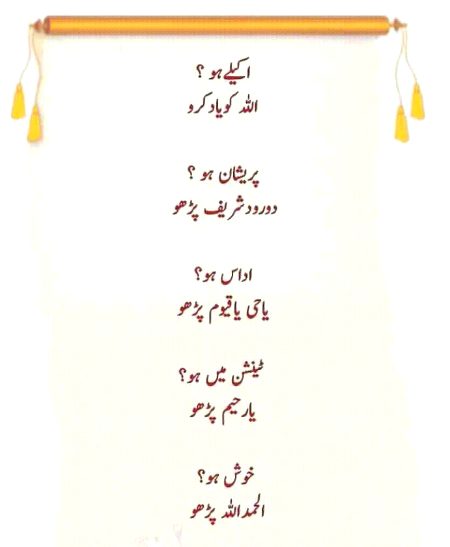 اکیلے ہو ؟
اللہ کو یاد کرو
پریشان ہو ؟
دورود شریف پڑھو
اداس ہو؟
یاحی یاقیوم پڑھو
ٹینشن میں ہو؟
یارحیم پڑھو
خوش ہو؟
الحمداللہ پڑھو